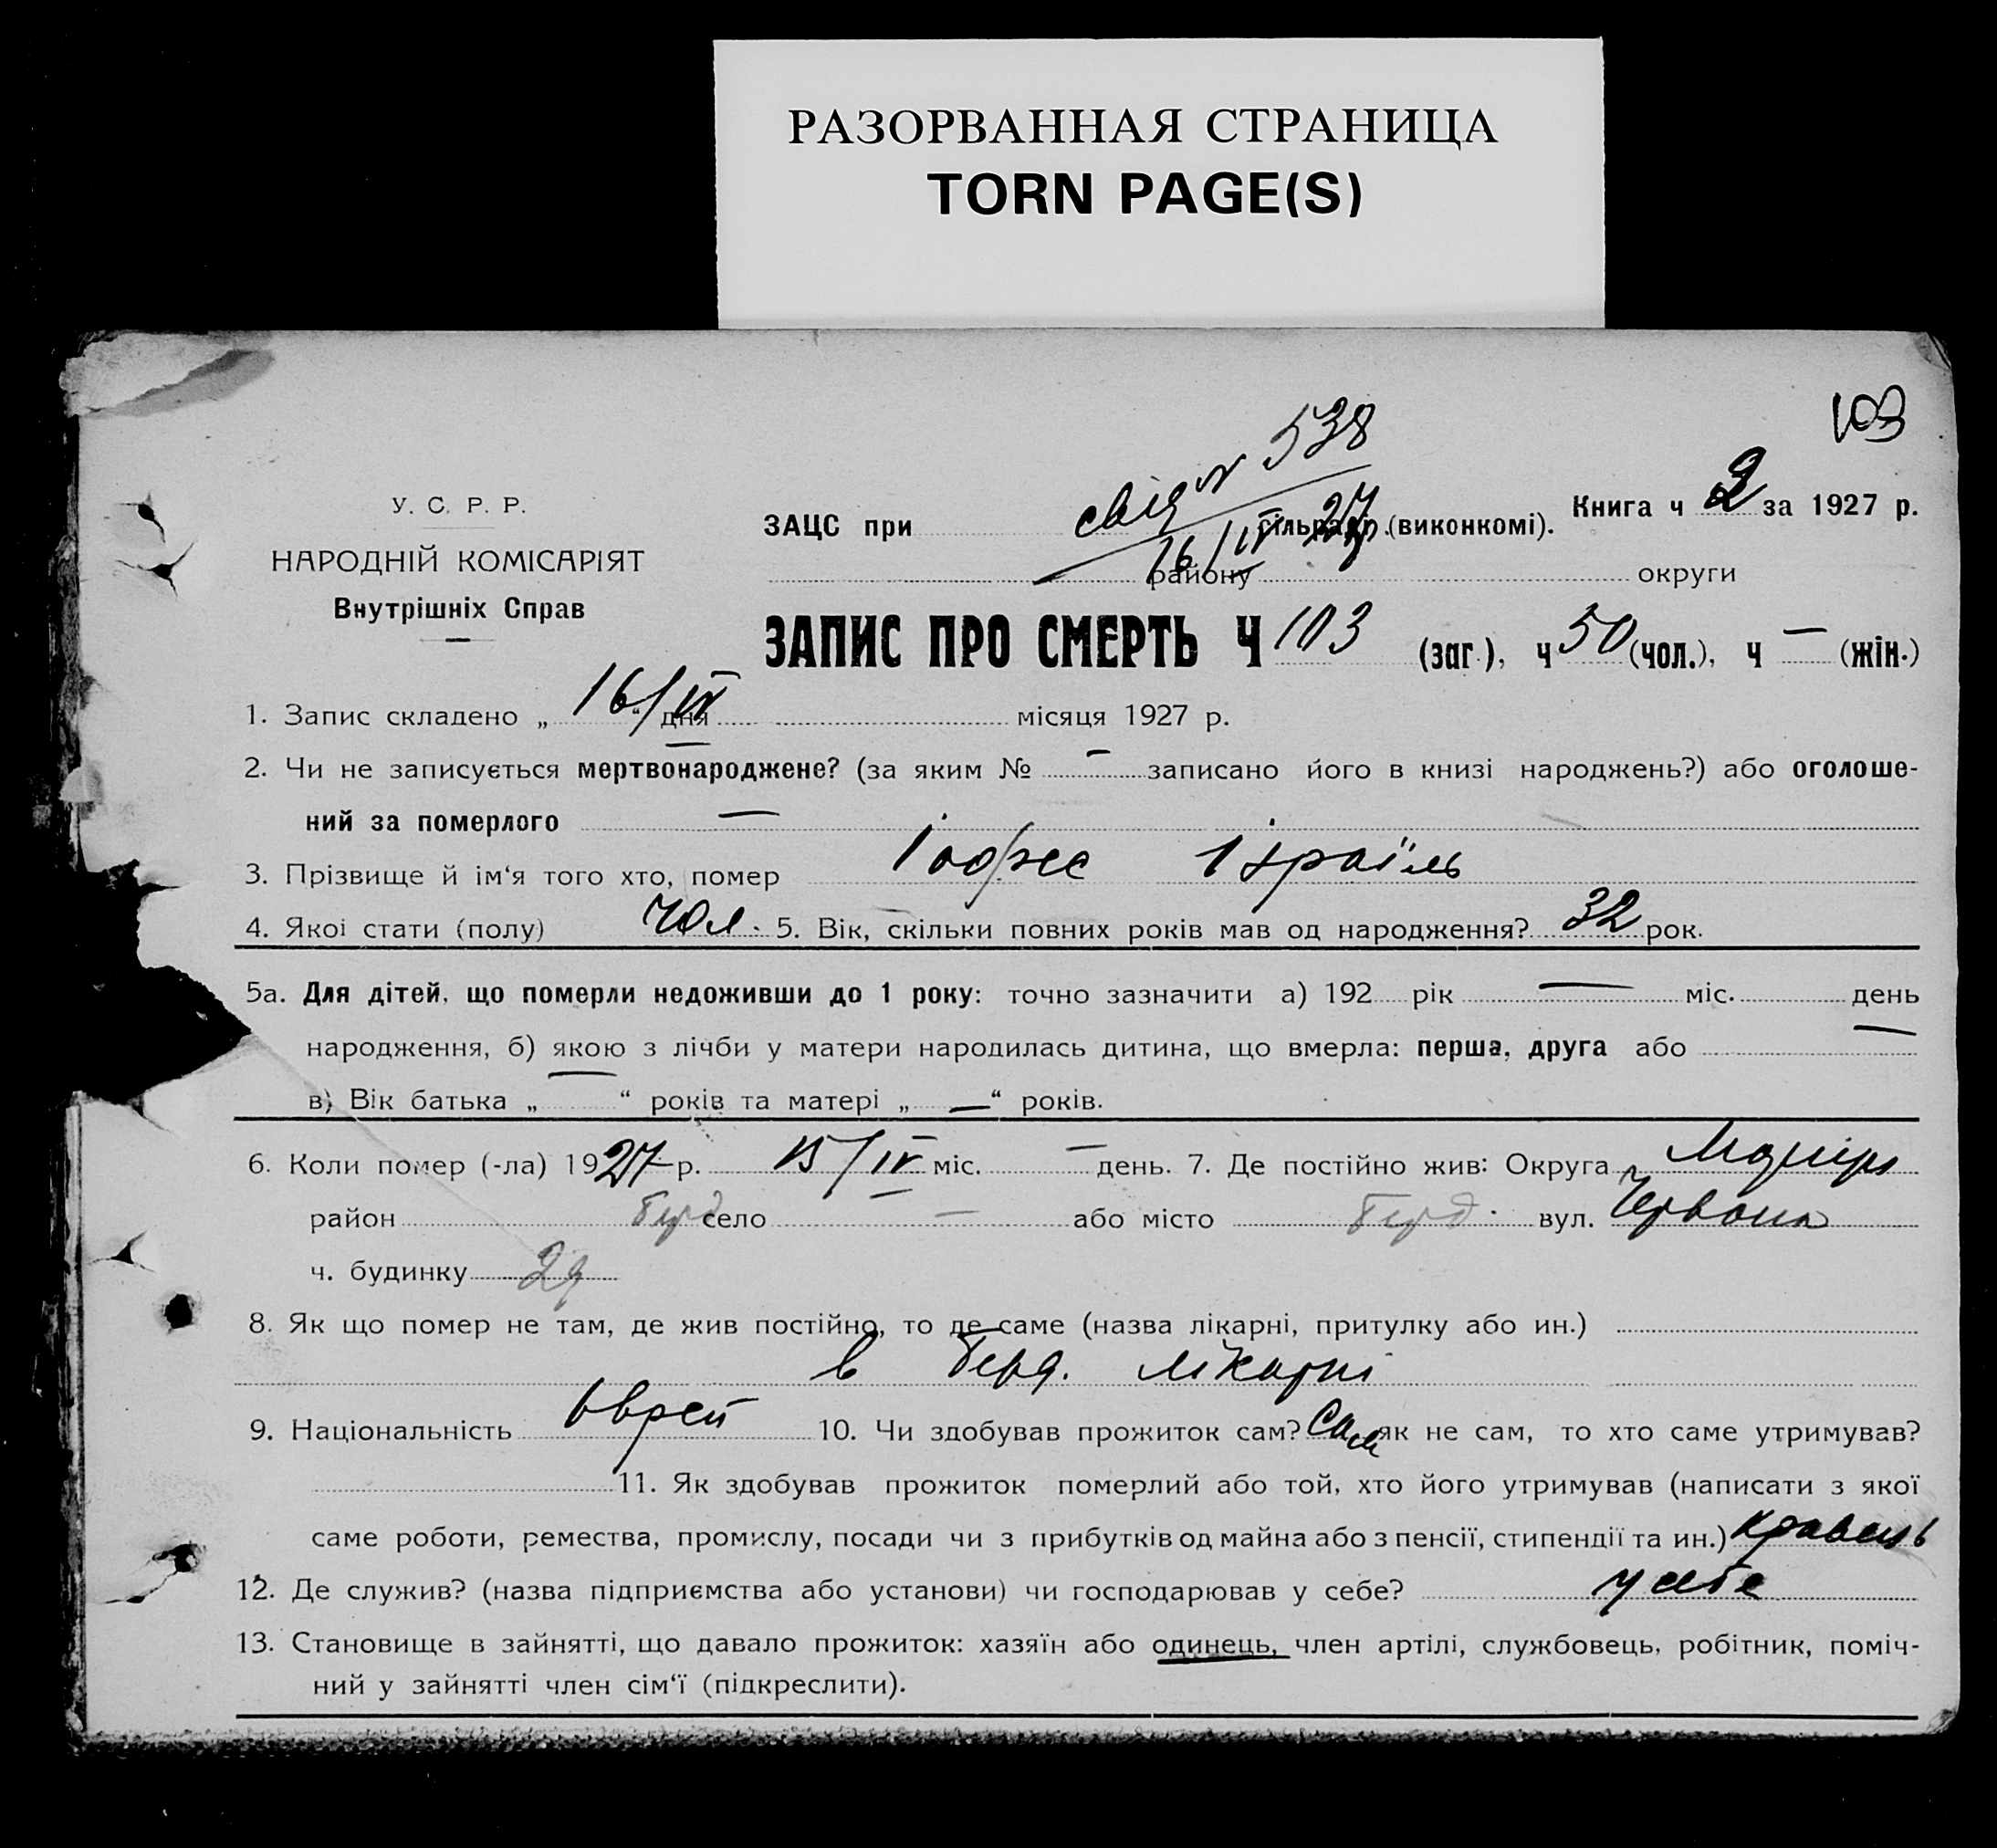 РАЗОРВАННАЯ СТРАНИЦА
TORN PAGE(S)
103
свід N 538
16/IV 27 р.
У. С. Р. Р.
НАРОДНІЙ КОМІСАРІЯТ
Внутрішніх Справ
Книга ч 2 за 1927 р.
ЗАЦС при сільраді (виконкомі).
району округи
ЗАПИС ПРО СМЕРТЬ Ч 103 (заг.), ч 50 (чол.), ч — (жін.)
1. Запис складено „ 16/IV “ дня місяця 1927 р.
2. Чи не записується мертвонароджене? (за яким № — записано його в книзі народжень?) або оголоше-
ний за померлого —
3. Прізвище й ім‘я того хто, помер Ізраїль
4. Якої стати (полу) Чол. 5. Вік, скільки повних років мав од народження? 32 рок.
5а. Для дітей, що померли недоживши до 1 року: точно зазначити а) 192 рік — міс. день
народження, б) якою з лічби у матери народилась дитина, що вмерла: перша, друга або —
в) Вік батька „ — “ років та матері „ — “ років.
6. Коли помер (-ла) 1927 р. 15/IV міс. — день. 7. Де постійно жив: Округа
район Берд село — або місто Берд. вул. Червона
ч. будинку
8. Як що помер не там, де жив постійно, то де саме (назва лікарні, притулку або ин.)
в Берд. лікарні
9. Національність Єврей 10. Чи здобував прожиток сам? Сам як не сам, то хто саме утримував?
11. Як здобував прожиток померлий або той, хто його утримував (написати з якої
саме роботи, ремества, промислу, посади чи з прибутків од майна або з пенсії, стипендії та ин.) кравець
12. Де служив? (назва підприємства або установи) чи господарював у себе? у себе
13. Становище в зайнятті, що давало прожиток: хазяїн або одинець, член артілі, службовець, робітник, поміч-
ний у зайнятті член сім‘ї (підкреслити).